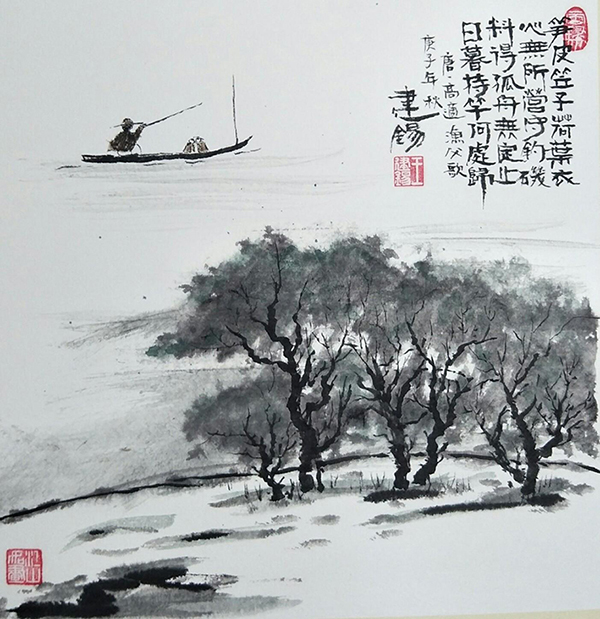 笋皮笠子荷葉衣
心無所營守釣磯
料得孤舟無定止
日暮持竿何處歸
唐·高適 漁父歌
庚子年 秋
建錫
王建錫